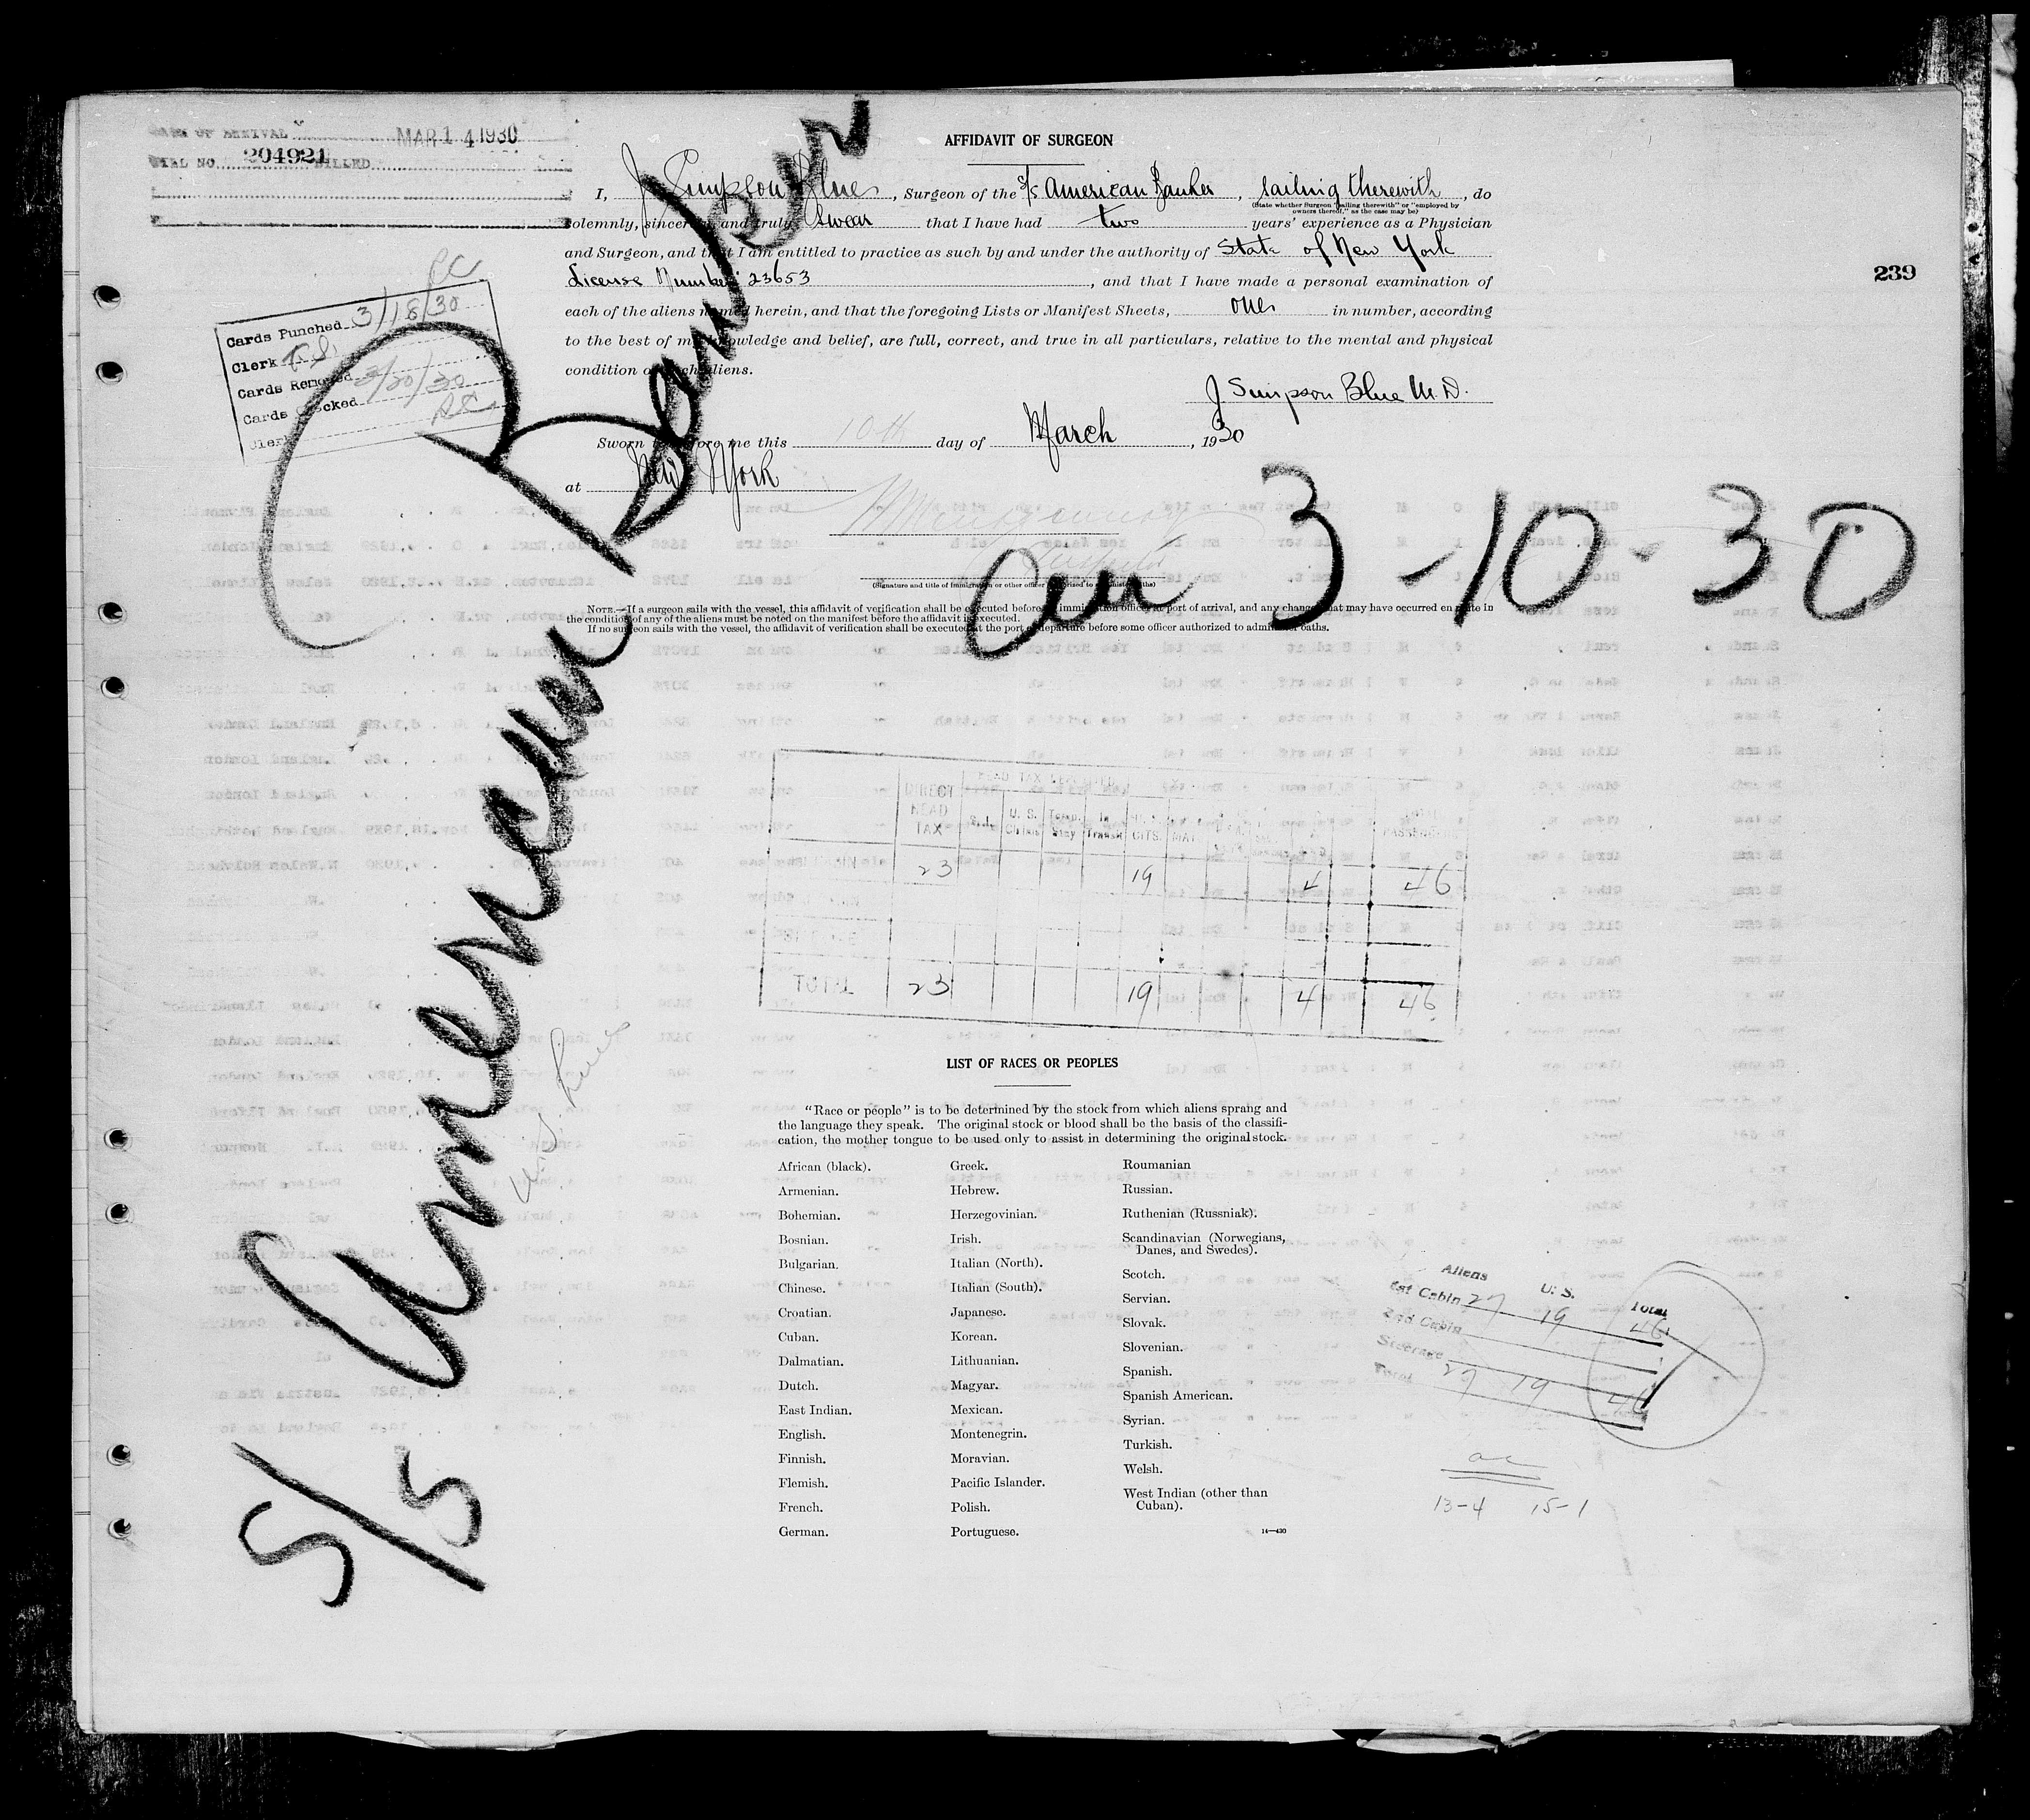 MAR 14 1930
204921 BILLED
239
AFFIDAVIT OF SURGEON
I, J Simpson Blue, Surgeon of the S/S American Banker, sailing therewith, do
(State whether Surgeon "sailing therewith" or "employed by
owners thereof," as the case may be)
solemnly, sincerely, and truly swear that I have had two years' experience as a Physician
and Surgeon, and that I am entitled to practice as such by and under the authority of State of New York
License Number 23653, and that I have made a personal examination of
each of the aliens named herein, and that the foregoing Lists or Manifest Sheets, one in number, according
to the best of my knowledge and belief, are full, correct, and true in all particulars, relative to the mental and physical
condition of such aliens.
J Simpson Blue M.D.
Sworn to before me this 10th day of March, 1930
at New York
(Signature and title of immigration or other officer authorized to administer oaths)
NOTE.—If a surgeon sails with the vessel, this affidavit of verification shall be executed before an immigration officer at port of arrival, and any changes that may have occurred en route in
the condition of any of the aliens must be noted on the manifest before the affidavit is executed.
If no surgeon sails with the vessel, the affidavit of verification shall be executed at the port of departure before some officer authorized to administer oaths.
Cards Punched 3/18/30
Clerk
Cards Removed 3/20/30
Cards Checked
Clerk
S/S American Banker
arr 3-10-30
U.S. Lines
DIRECT HEAD TAX
U. S. Citizens Temp. Stay In Transit
23 19 4 46
TOTAL 23 19 4 46
LIST OF RACES OR PEOPLES
"Race or people" is to be determined by the stock from which aliens sprang and
the language they speak. The original stock or blood shall be the basis of the classifi-
cation, the mother tongue to be used only to assist in determining the original stock.
African (black).
Armenian.
Bohemian.
Bosnian.
Bulgarian.
Chinese.
Croatian.
Cuban.
Dalmatian.
Dutch.
East Indian.
English.
Finnish.
Flemish.
French.
German.
Greek.
Hebrew.
Herzegovinian.
Irish.
Italian (North).
Italian (South).
Japanese.
Korean.
Lithuanian.
Magyar.
Mexican.
Montenegrin.
Moravian.
Pacific Islander.
Polish.
Portuguese.
Roumanian
Russian.
Ruthenian (Russniak).
Scandinavian (Norwegians,
Danes, and Swedes).
Scotch.
Servian.
Slovak.
Slovenian.
Spanish.
Spanish American.
Syrian.
Turkish.
Welsh.
West Indian (other than
Cuban).
14—430
Aliens U. S. Total
1st Cabin 27 19 46
2nd Cabin
Steerage
Total 27 19 46
13-4 15-1